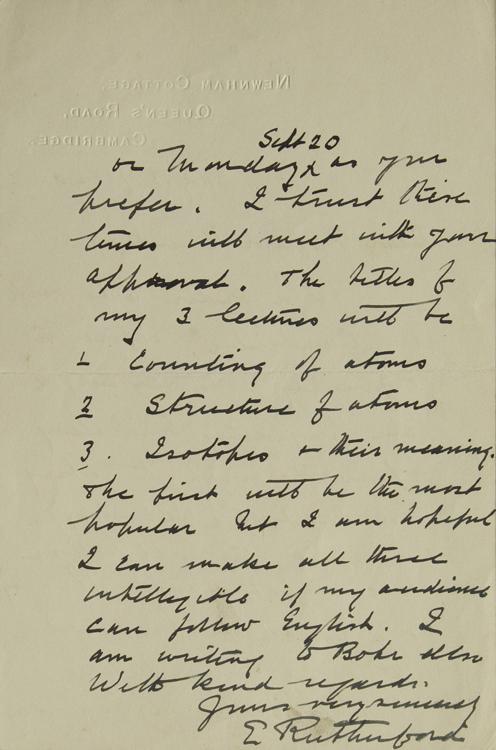 NEWNHAM COTTAGE,
QUEEN'S ROAD,
CAMBRIDGE.
Sept 20
or Monday as you
prefer. I trust these
times will meet with your
approval. The titles of
my 3 lectures will be
1 Counting of atoms
2 Structure of atoms
3. Isotopes & their meaning.
The first will be the most
popular but I am hopeful
I can make all three
intelligible if my audience
can follow English. I
am writing to Bohr also
With kind regards.
Yours very sincerely
E Rutherford